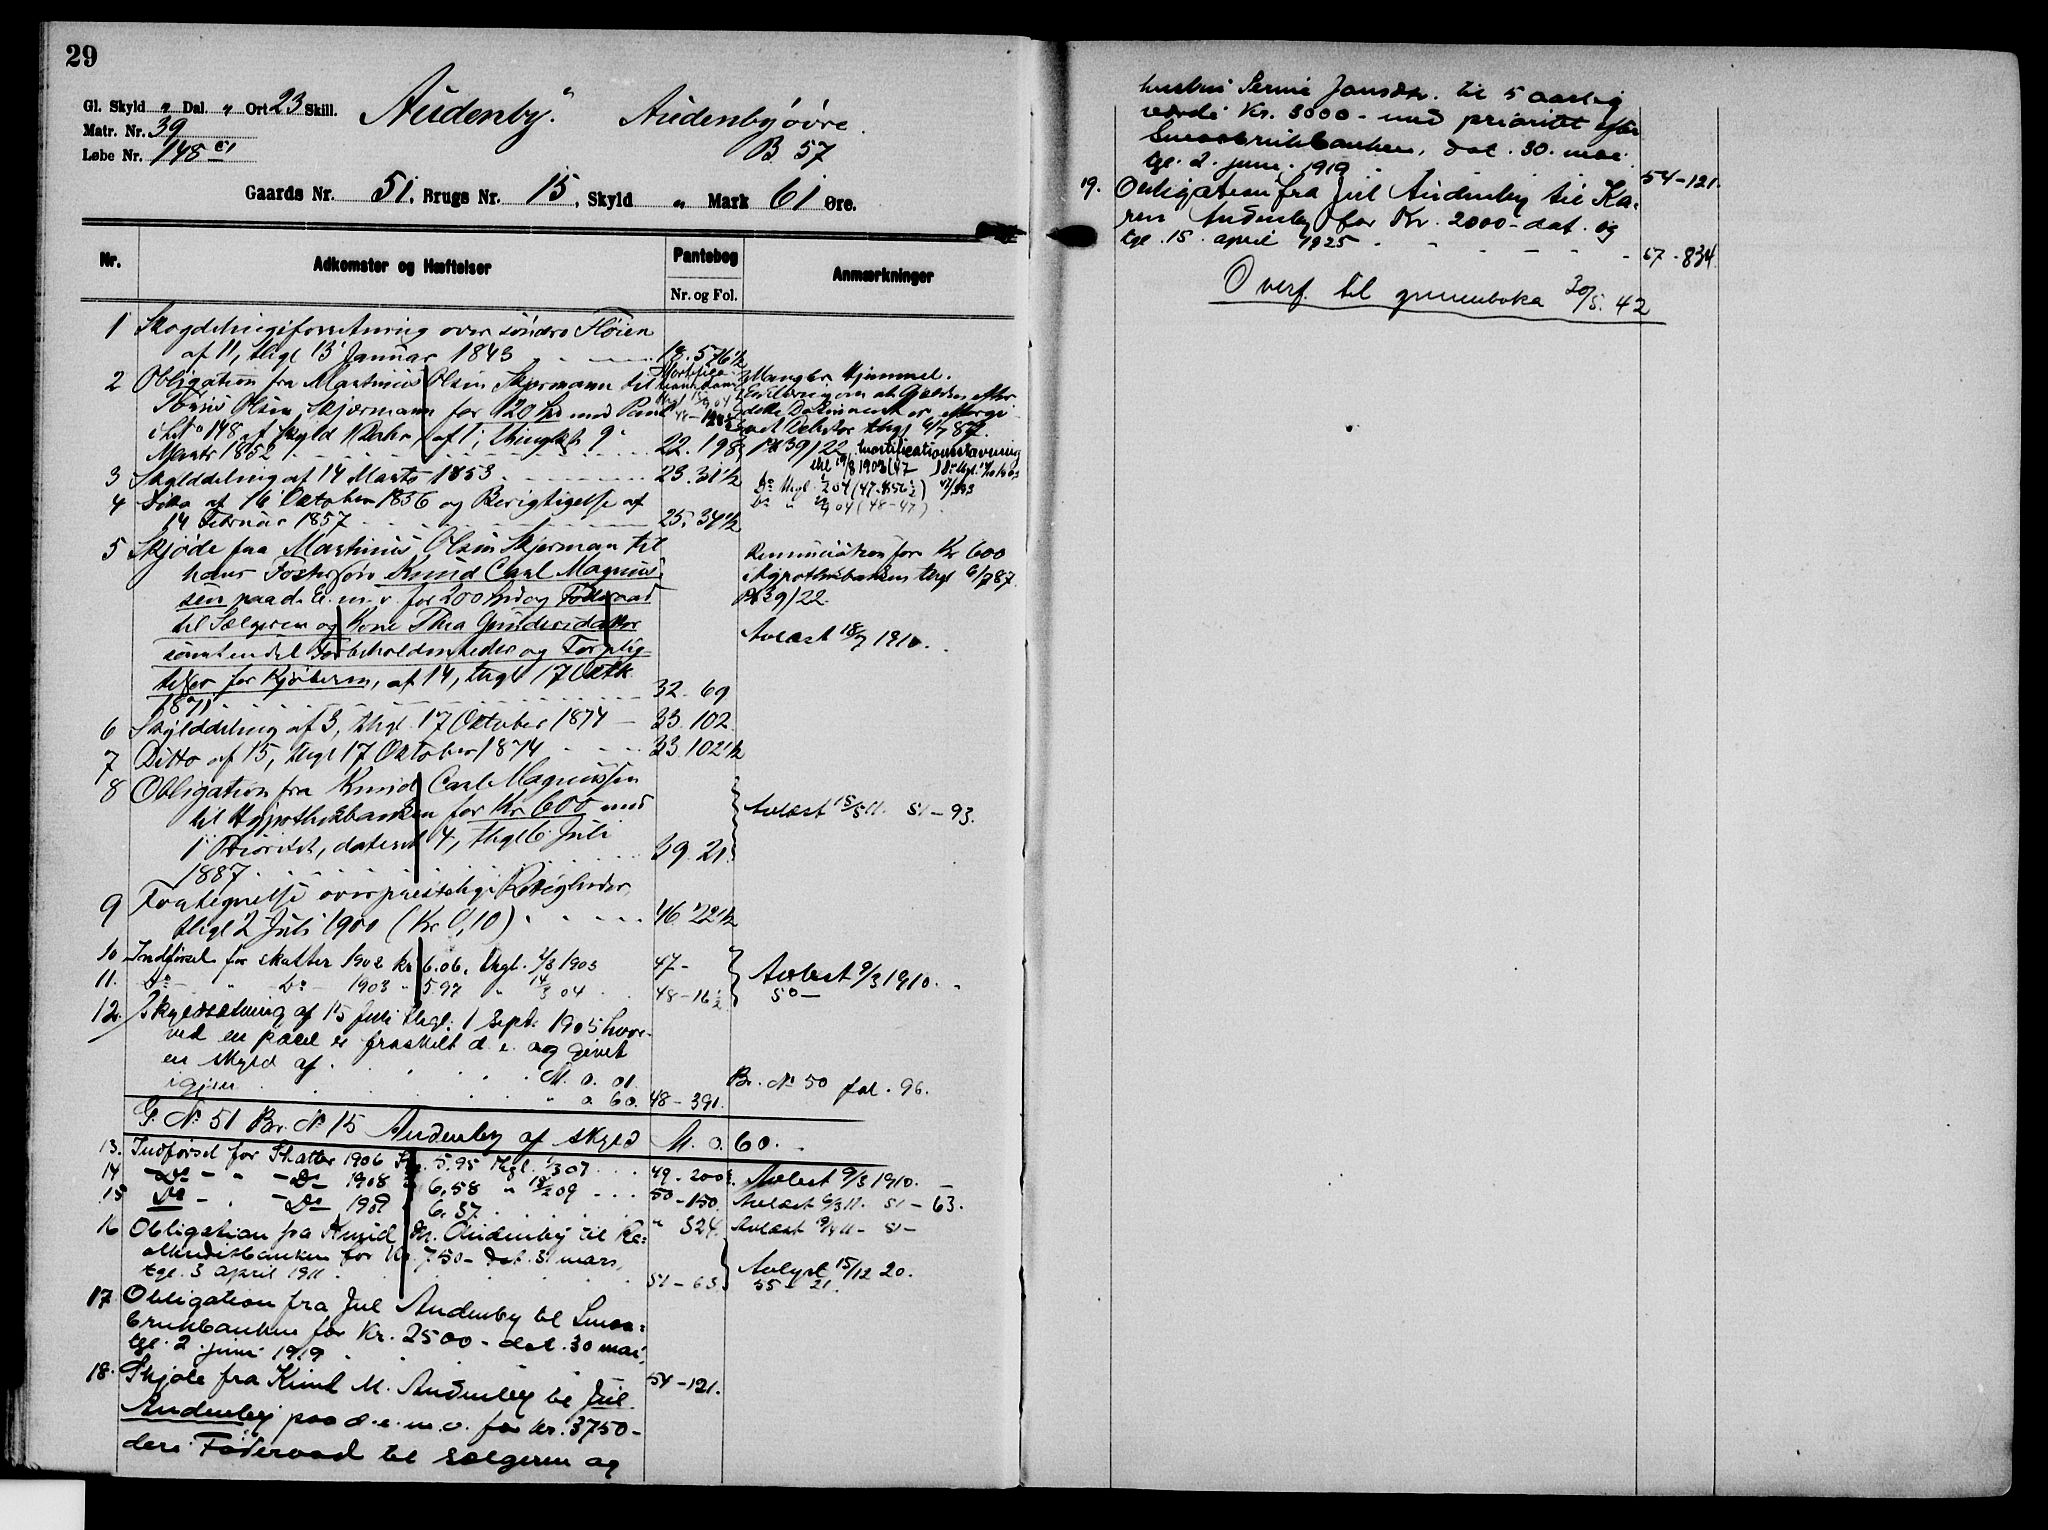 29
Gl. Skyld " Dal. " Ort 23 Skill.
Matr. Nr. 39
Løbe Nr. 148 c1
Audenby. Audenby øvre.
B 57
Gaards Nr. 51, Brugs Nr. 15, Skyld " Mark 61 Øre.
Nr. Adkomster og Hæftelser Pantebog Anmærkninger
Nr. og Fol.
1 over søndre Fløien
af 11, thgl 13 Januar 1843 18. 576 1/2
2 Obligation fra Martinus Olsen Skjermann til Mangler Hjemmel.
Olsen Skjermann for 120 Spd med Pant
i L.No 148 af Skyld 1 Daler af 1, thinglæst 9 22. 198 Pb 39/22
Marts 1852
3 Skylddeling af 14 Marts 1853 23. 31 1/2
4 af 16 Oktober 1856 og Berigtigelse af
14 Februar 1857 25. 34 1/2
5 Skjøde fra Martinus Olsen Skjerman til
hans Fostersøn Knud Carl Magnus-
sen paa d. E. m. v. for 200 Spd og Føderaad
til Sælgeren og Kone Thea Gundersdatter
samt endel Forbeholdenheder og Forplig-
telser for Kjøberen, af 14, thgl 17 Oktb.
1871 32. 69
Renunciation for Kr 600
i Hypothekbanken thgl 6/7 87
Pb 39/22.
Avlæst 18/7 1910.
6 Skylddeling af 3, thgl 17 Oktober 1874 33. 102
7 Ditto af 15, thgl 17 Oktober 1874 33. 102 1/2
8 Obligation fra Knud Carl Magnussen
til Hypothekbanken for Kr 600 med Avlæst 15/5 11. 51 – 93.
1 Prioritet, dateret 4, thgl 6 Juli
1887 39. 21.
9 Fortegnelse over præstelige Rettigheder,
thgl 2 Juli 1900 (Kr 0,10) 46. 221 1/2
10 Indførsel for skatter 1902 kr 6.06, thgl. 4/3 1903 47- Avlæst 9/3 1910.
11. Do – " – Do – 1903 " 5.97 " 14/3 04 48 – 16 1/2 50 –
12. Skyldsætning af 15 juli thgl. 1 sept. 1905 hvor-
ved en parcel er fraskilt d. e. og givet
en skyld af M. 0. 01. Br. No 50 fol. 96.
igjen " 0. 60. 48 – 391.
G. No 51 Br. No 15 Audenby af skyld M. 0. 60.
13. Indførsel for Skatter 1906 Kr. 5.95 thgl. 1/3 07 49. 200 Avlæst 9/3 1910.
14 Do – " – Do 1908 " 6.58 " 18/2 09 50 – 150. Avlæst 6/3 11. 51 – 63.
15 Do – " – Do 1909 " 6.37 " 324. Avlæst 9/3 11 – 51 –
16 Obligation fra Knud M. Audenby til
for Kr. 750 – dat. 31 mars,
tgl. 3 april 1911 51 – 63 Avlyst 15/12 20.
55 – 21.
17 Obligation fra Jul Audenby til Smaa-
brukbanken for Kr. 2500 – dat. 30 mai,
tgl. 2 juni 1919 54 – 121.
18. Skjøte fra Knut M. Audenby til Jul
Audenby paa d. e. m. v. for kr. 3750 –
deri Føderaad til sælgeren og
hustru Jansdtr. til 5 aarlig
verdi Kr. 3000 – med prioritet efter
Smaabrukbanken, dat. 30. mai
tgl. 2. juni 1919 54 – 121.
19. Obligation fra Jul Audenby til Ka-
ren Audenby for Kr. 2000 – dat. og
tgl. 15. april 1925 57 – 834.
Overf. til grunnboka 30/5. 42